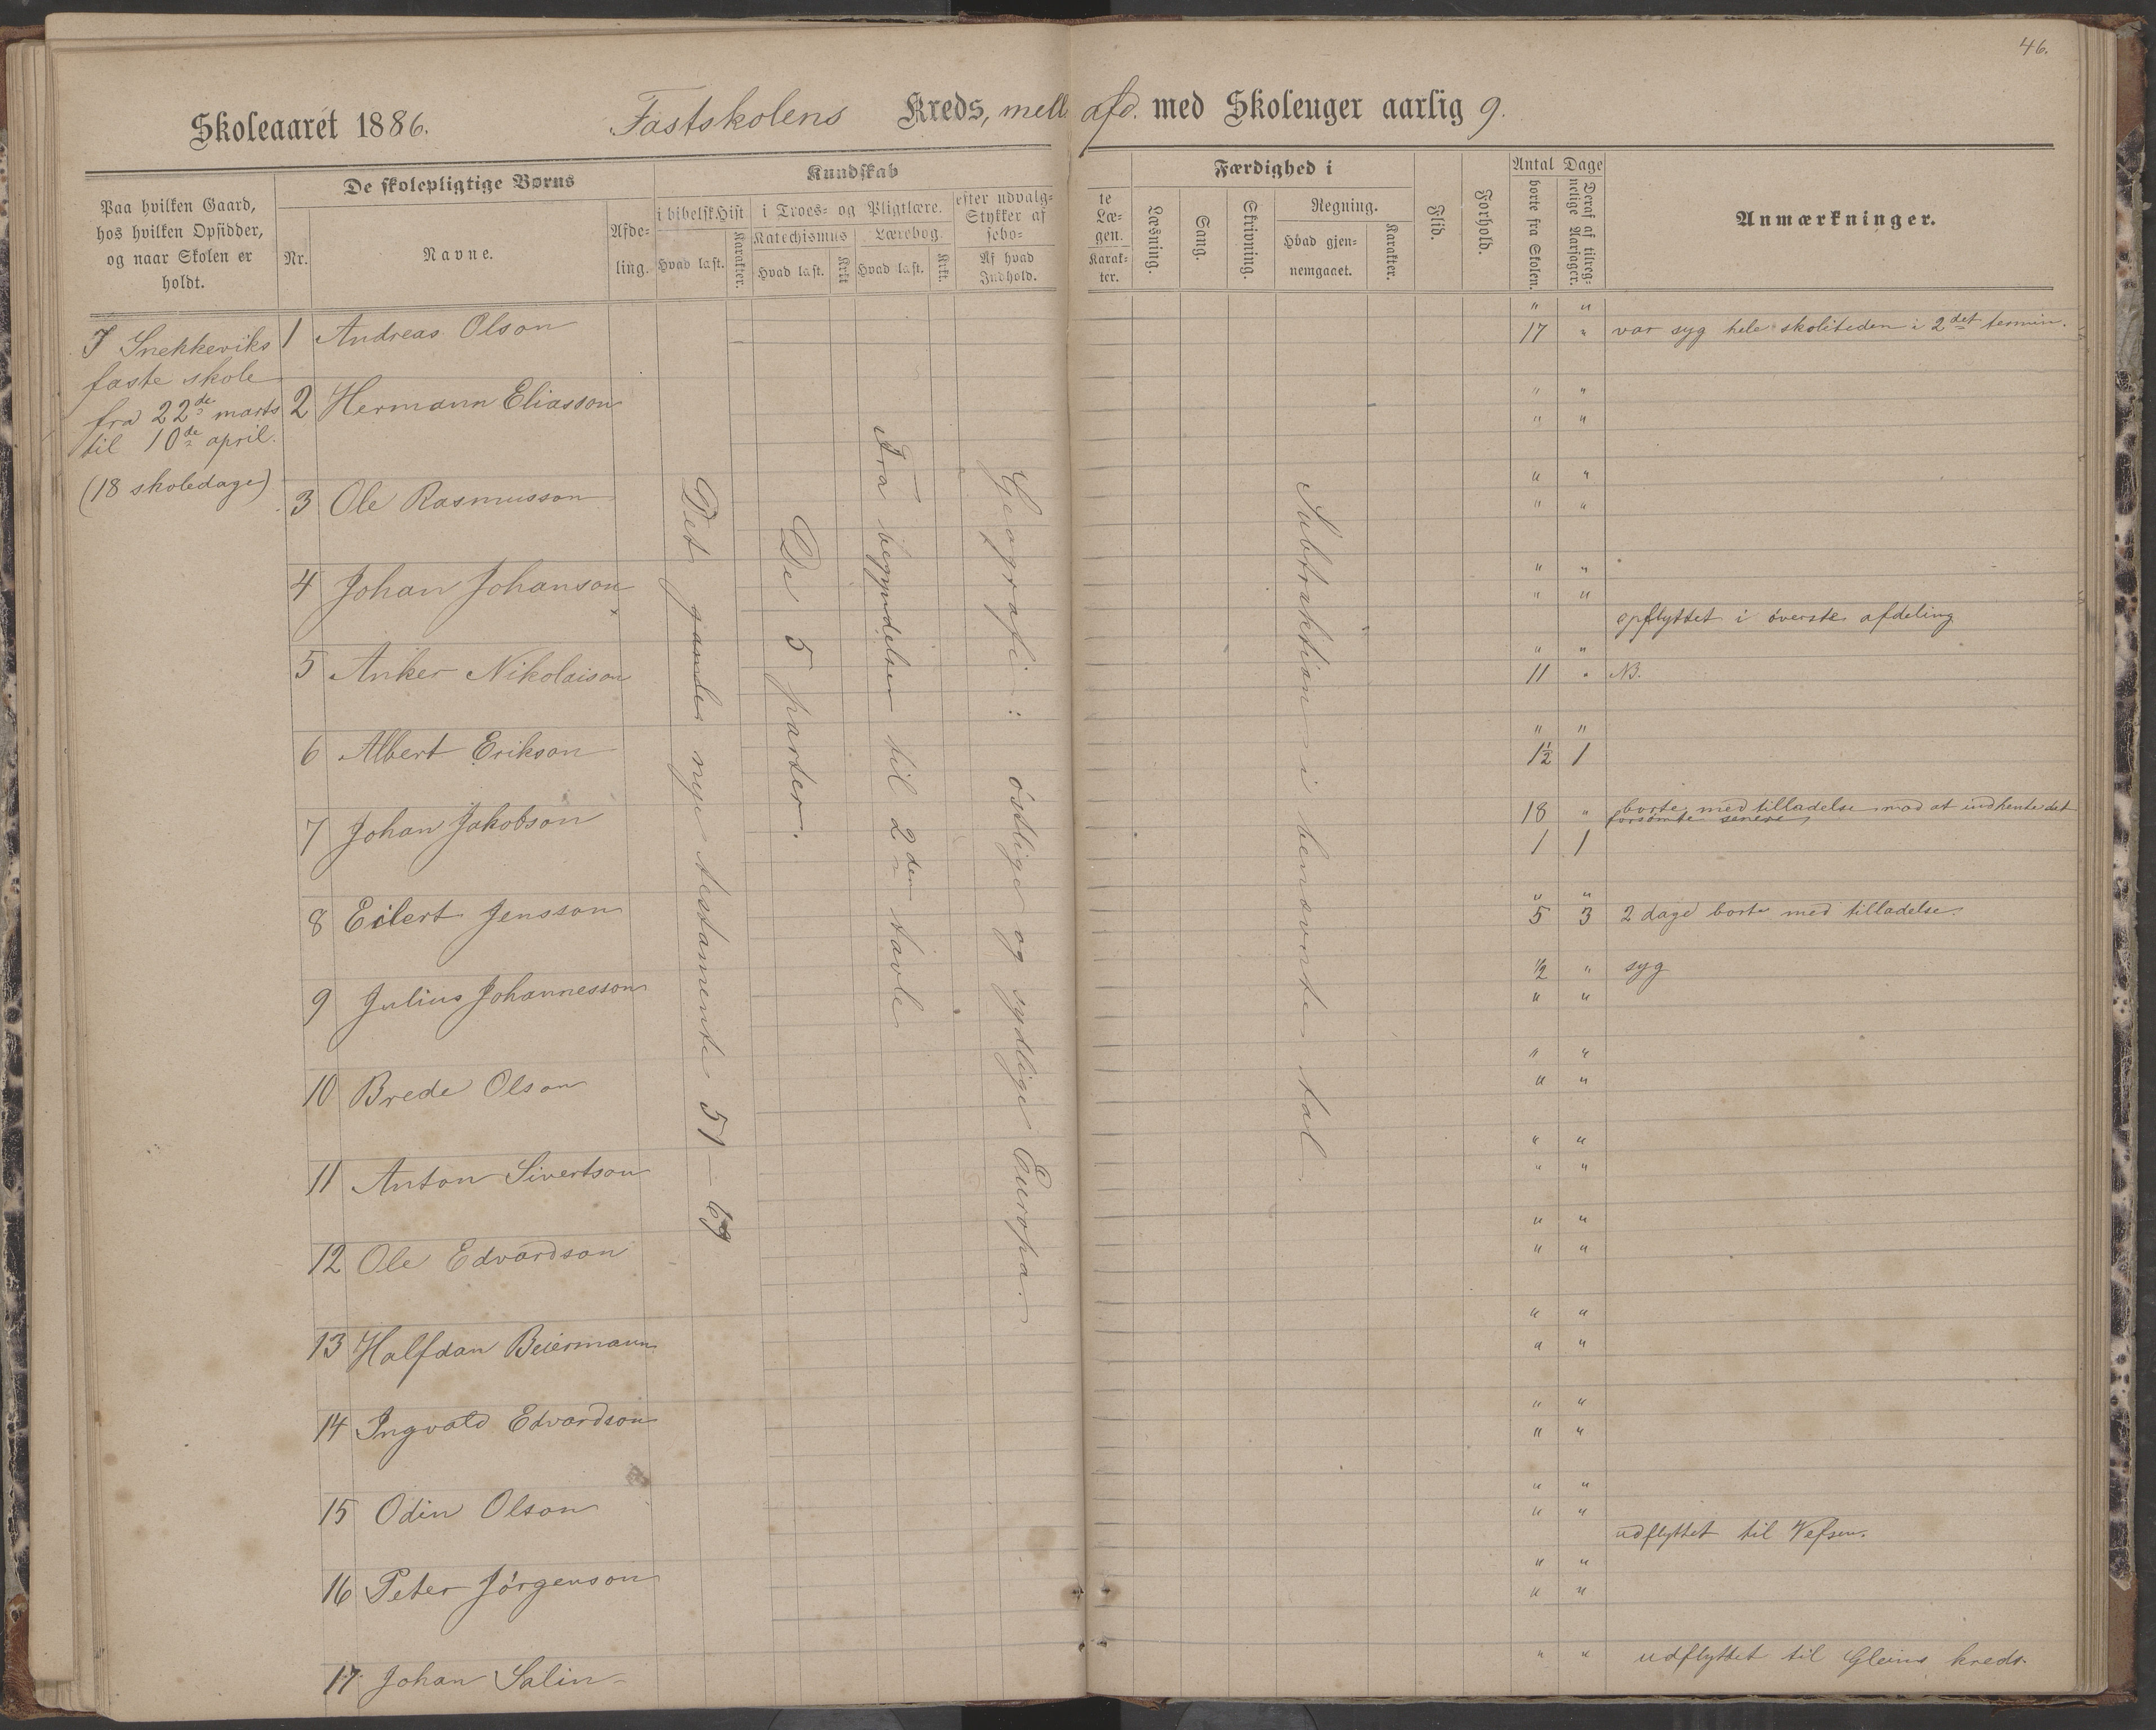 46.
Skoleaaret 1886.
Fastskolens Kreds, mell afd. med Skoleuger aarlig 9.
Paa hvilken Gaard,
hos hvilken Opsidder,
og naar Skolen er
holdt.
De skolepligtige Børns
Nr.
Navne.
Afde-
ling.
Kundskab
i bibelsk Hist
Hvad læst.
Karakter.
i Troes- og Pligtlære.
Katechismus
Hvad læst.
Krkt
Lærebog.
Hvad læst.
Krkt.
efter udvalg-
Stykker af
sebo-
Af hvad
Indhold.
te
Læ-
gen.
Karak-
ter.
Færdighed i
Læsning.
Sang.
Skrivning.
Regning.
Hvad gjen-
nemgaaet.
Karakter.
Flid.
Forhold.
Antal Dage
borte fra Skolen.
Deraf af tilreg-
nelige Aarsager.
Anmærkninger.
I Snekkeviks
faste skole
fra 22de marts
til 10de april.
(18 skoledage)
Det gamle nye testamente 51 - 69
De 5 parter.
Fra begyndelsen til 2den tavle
Geografi: østlige og sydlige Europa.
Subtraktion i benævnte tal.
" "
1 Andreas Olson 17 " var syg hele skoletiden i 2det termin.
" "
2 Hermann Eliasson " "
" "
3 Ole Rasmusson " "
" "
4 Johan Johanson " "
opflyttet i överste afdeling
" "
5 Anker Nikolaison 11 " NB.
" "
6 Albert Erikson 1½ 1
18 " borte med tilladelse mod at indhente det
forsömte senere
7 Johan Jakobson 1 1
" "
8 Eilert Jensson 5 3 2 dage borte med tilladelse.
½ " syg
9 Julius Johannesson " "
" "
10 Brede Olson " "
" "
11 Anton Sivertson " "
" "
12 Ole Edvardson " "
" "
13 Halfdan Beiermann " "
" "
14 Ingvald Edvardson " "
" "
15 Odin Olson " "
udflyttet til Vefsen.
" "
16 Peter Jörgenson " "
17 Johan Salin " " udflyttet til Gleins kreds.